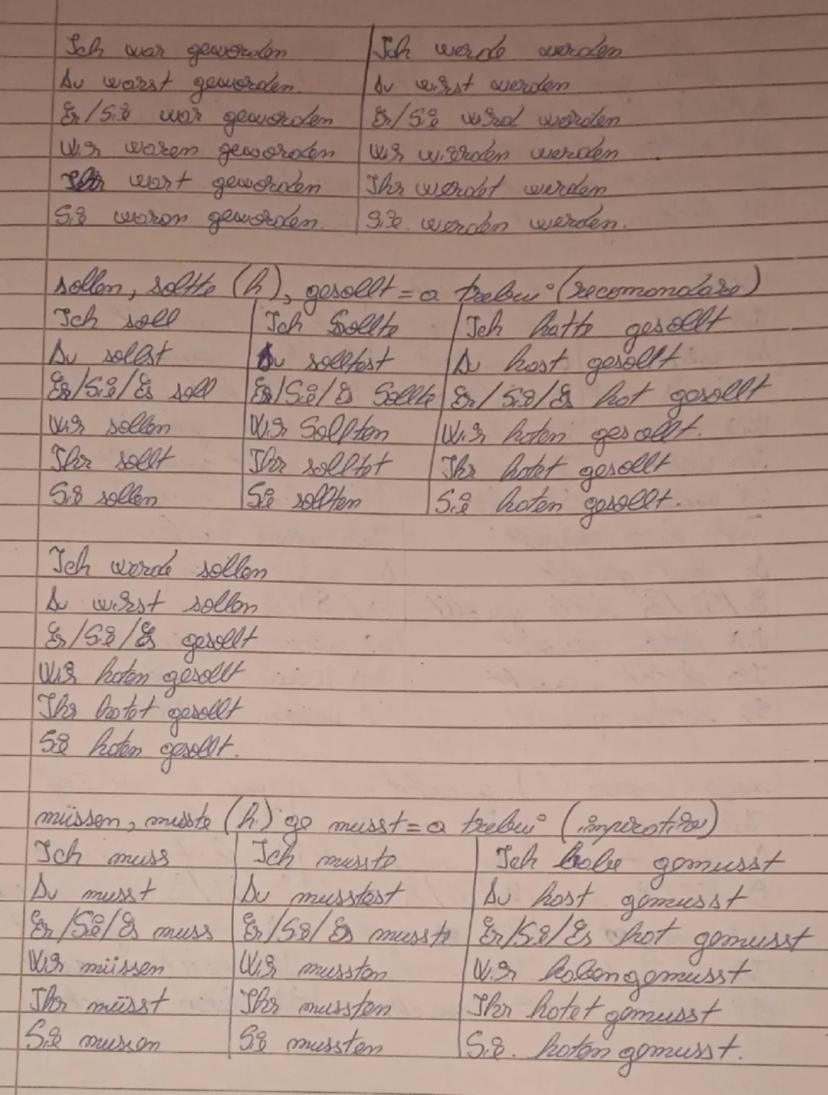 Ich war geworden Ich werde werden
Du warst geworden. Du wirst werden
Er/Sie war geworden Er/Sie wird werden
Wir waren geworden Wir wierden werden
Ihr wart geworden Ihr werdet werden
Sie waren geworden. Sie werden werden.
sollen, sollte (h), gesollt = a trebui (recomandare)
Ich soll Ich Sollte Ich hatte gesollt
Du sollst Du solltest Du hast gesollt
Er/Sie/Es soll Er/Sie/Es Sollte Er/Sie/Es hat gesollt
Wir sollen Wir Sollten Wir haten gesollt.
Ihr sollt Ihr solltet Ihr hatet gesollt
Sie sollen Sie sollten Sie haten gesollt.
Ich werde sollen
Du wirst sollen
Er/Sie/Es gesollt
Wir haten gesollt
Ihr hatet gesollt
Sie haten gesollt.
müssen, musste (h) ge musst = a trebui (imperativ)
Ich muss Ich musste Ich habe gemusst
Du musst Du musstest Du hast gemusst
Er/Sie/Es muss Er/Sie/Es musste Er/Sie/Es hat gemusst
Wir müssen Wir mussten Wir haben gemusst
Ihr müsst Ihr mussten Ihr hatet gemusst
Sie mussen Sie mussten Sie. haten gemusst.